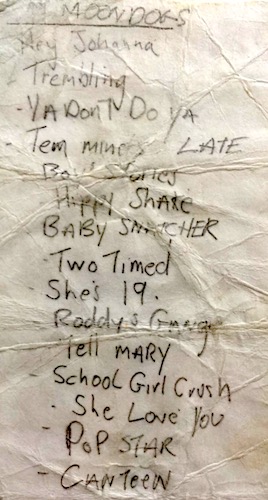 MOONDOGS
Hey Johanna
Trembling
- YA DONT DO YA
- Tem minets LATE
Bad Stories
Hippy Shake
BABY SNATCHER
- Two Timed
- She's 19.
Roddy's Garage
Tell MARY
- School Girl Crush
- She Love You
- POP STAR
- CANTEEN